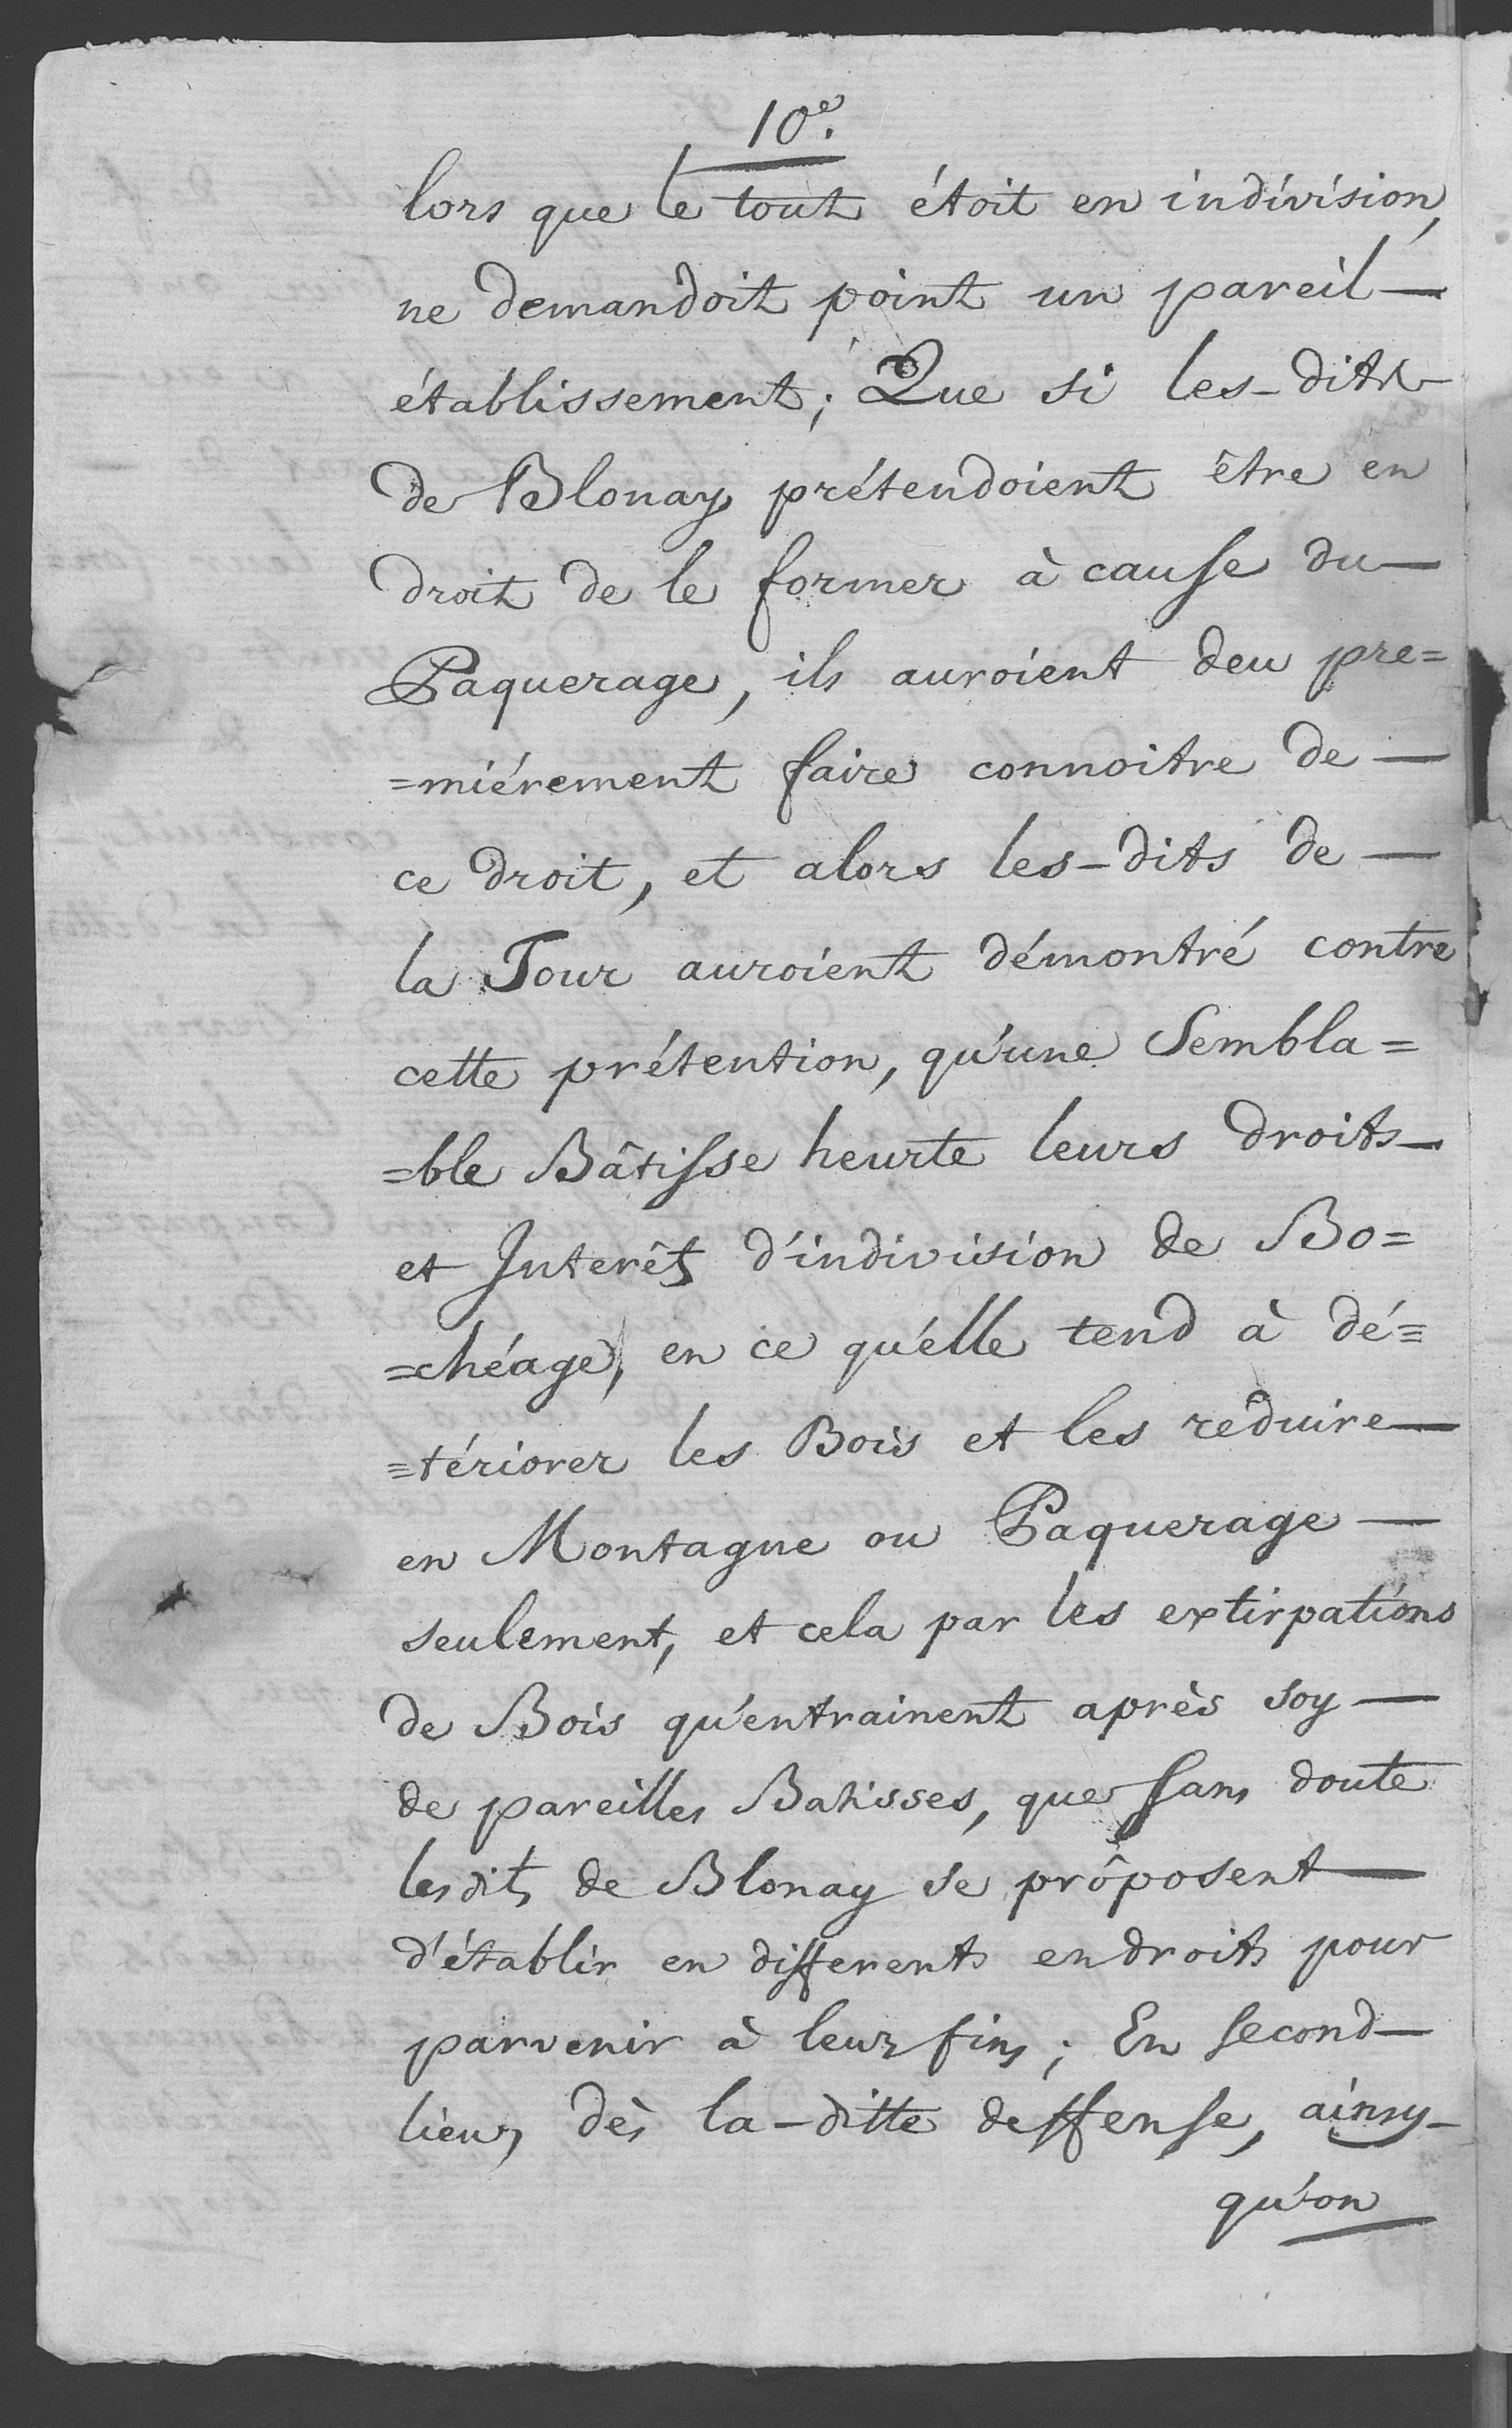 10e.
lors que le tout étoit en indivision,
ne demandoit point un pareil —
établissement; Que si les-dits
de Blonay prétendoient être en
droit de le former à cause du —
Paquerage, ils auroient deu pre=
=miérement faire connoitre de —
ce droit, et alors les-dits de —
la Tour auroient démontré contre
cette prétention, qu'une Sembla=
=ble Bâtisse heurte leurs droits —
et Interêts d'indivision de Bo=
=chéage, en ce qu'elle tend à dé=
=tériorer les Bois et les réduire —
en Montagne ou Paquerage —
seulement, et cela par les extirpations
de Bois qu'entrainent après soy —
de pareilles Batisses, que sans doute
lesdits de Blonay se prôposent —
d'établir en differents endroits pour
parvenir à leur fins; En second —
lieu, dès la-ditte deffense, ainsy —
qu'on